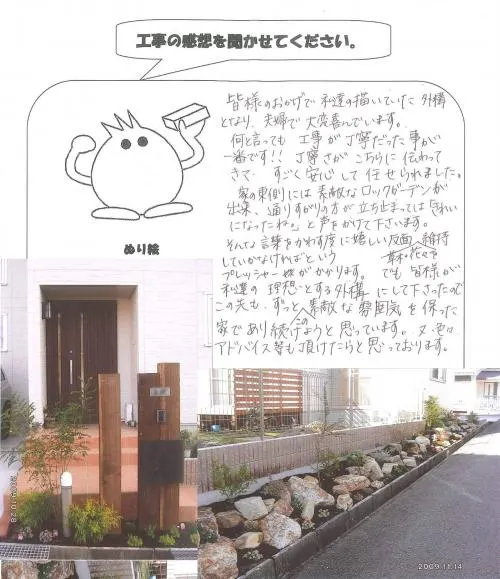 工事の感想を聞かせてください。
皆様のおかげで 私達の描いていた 外構
となり、夫婦で 大変喜んでいます。
何と言っても 工事が 丁寧だった事が
一番です!! 丁寧さが こちらに 伝わって
きて、すごく 安心して 任せられました。
家の東側には 素敵な ロックガーデンが
出来、通りすがりの方が 立ち止まっては「きれい
になったね。」と 声をかけて 下さいます。
そんな 言葉をかわす度に 嬉しい反面、維持
草木・花々を
していかなければという
プレッシャー 様がかかります。 でも 皆様が
私達の 理想とする外構 にして下さったので
この先も、ずっと 素敵な 雰囲気を 保った
この
家であり続けようと 思っています。又、色々
アドバイス等も 頂けたらと 思っております。
ぬり絵
2009.10.28
2009.11.14